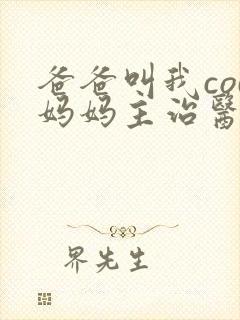 爸爸叫我co
妈妈主治醫
界先生